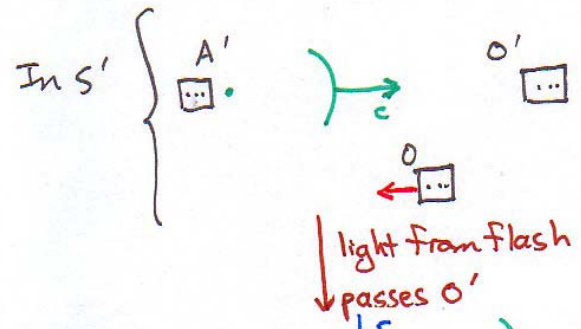 In S'
A'
O'
c
O
light from flash
passes O'